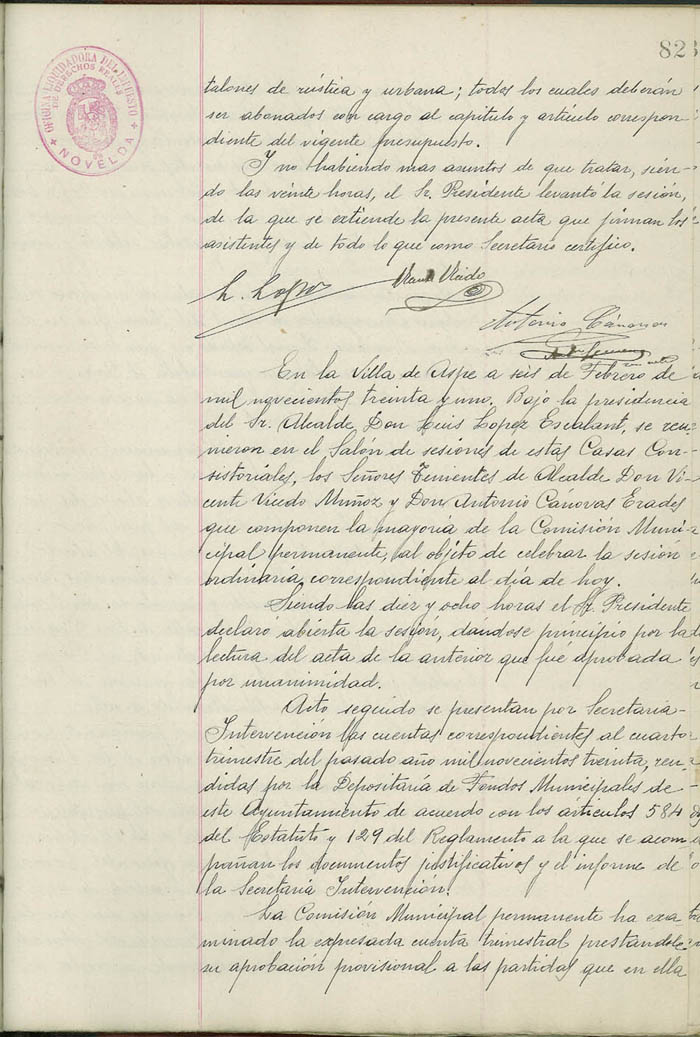 82
OFICINA LIQUIDADORA DEL IMPUESTO
DE DERECHOS REALES
NOVELDA
talones de rústica y urbana; todos los cuales deberán
ser abonados con cargo al capítulo y artículo correspon-
diente del vigente presupuesto.
Y no habiendo mas asuntos de que tratar, sien-
do las veinte horas, el Sr. Presidente levantó la sesión,
de la que se extiende la presente acta que firman los
asistentes y de todo lo que como Secretario certifico.
L. Lopez
Vicedo
Antonio Cánovas
En la Villa de Aspe a seis de Febrero de
mil novecientos treinta y uno. Bajo la presidencia
del Sr. Alcalde Don Luis Lopez Escalant, se reu-
nieron en el Salón de sesiones de estas Casas Con-
sistoriales, los Señores Tenientes de Alcalde Don Vi-
cente Vicedo Muñoz y Don Antonio Cánovas Erades
que componen la mayoría de la Comisión Muni-
cipal permanente, al objeto de celebrar la sesión
ordinaria correspondiente al día de hoy.
Siendo las diez y ocho horas el Sr. Presidente
declaró abierta la sesión, dándose principio por la
lectura del acta de la anterior que fué aprobada
por unanimidad.
Acto seguido se presentan por Secretaría-
Intervención las cuentas correspondientes al cuarto
trimestre del pasado año mil novecientos treinta, ren-
didas por la Depositaría de Fondos Municipales de
este Ayuntamiento de acuerdo con los artículos 584
del Estatuto y 129 del Reglamento a la que se acom
pañan los documentos justificativos y el informe de
la Secretaría Intervención.
La Comisión Municipal permanente ha exa-
minado la expresada cuenta trimestral prestándole
su aprobación provisional a las partidas que en ella